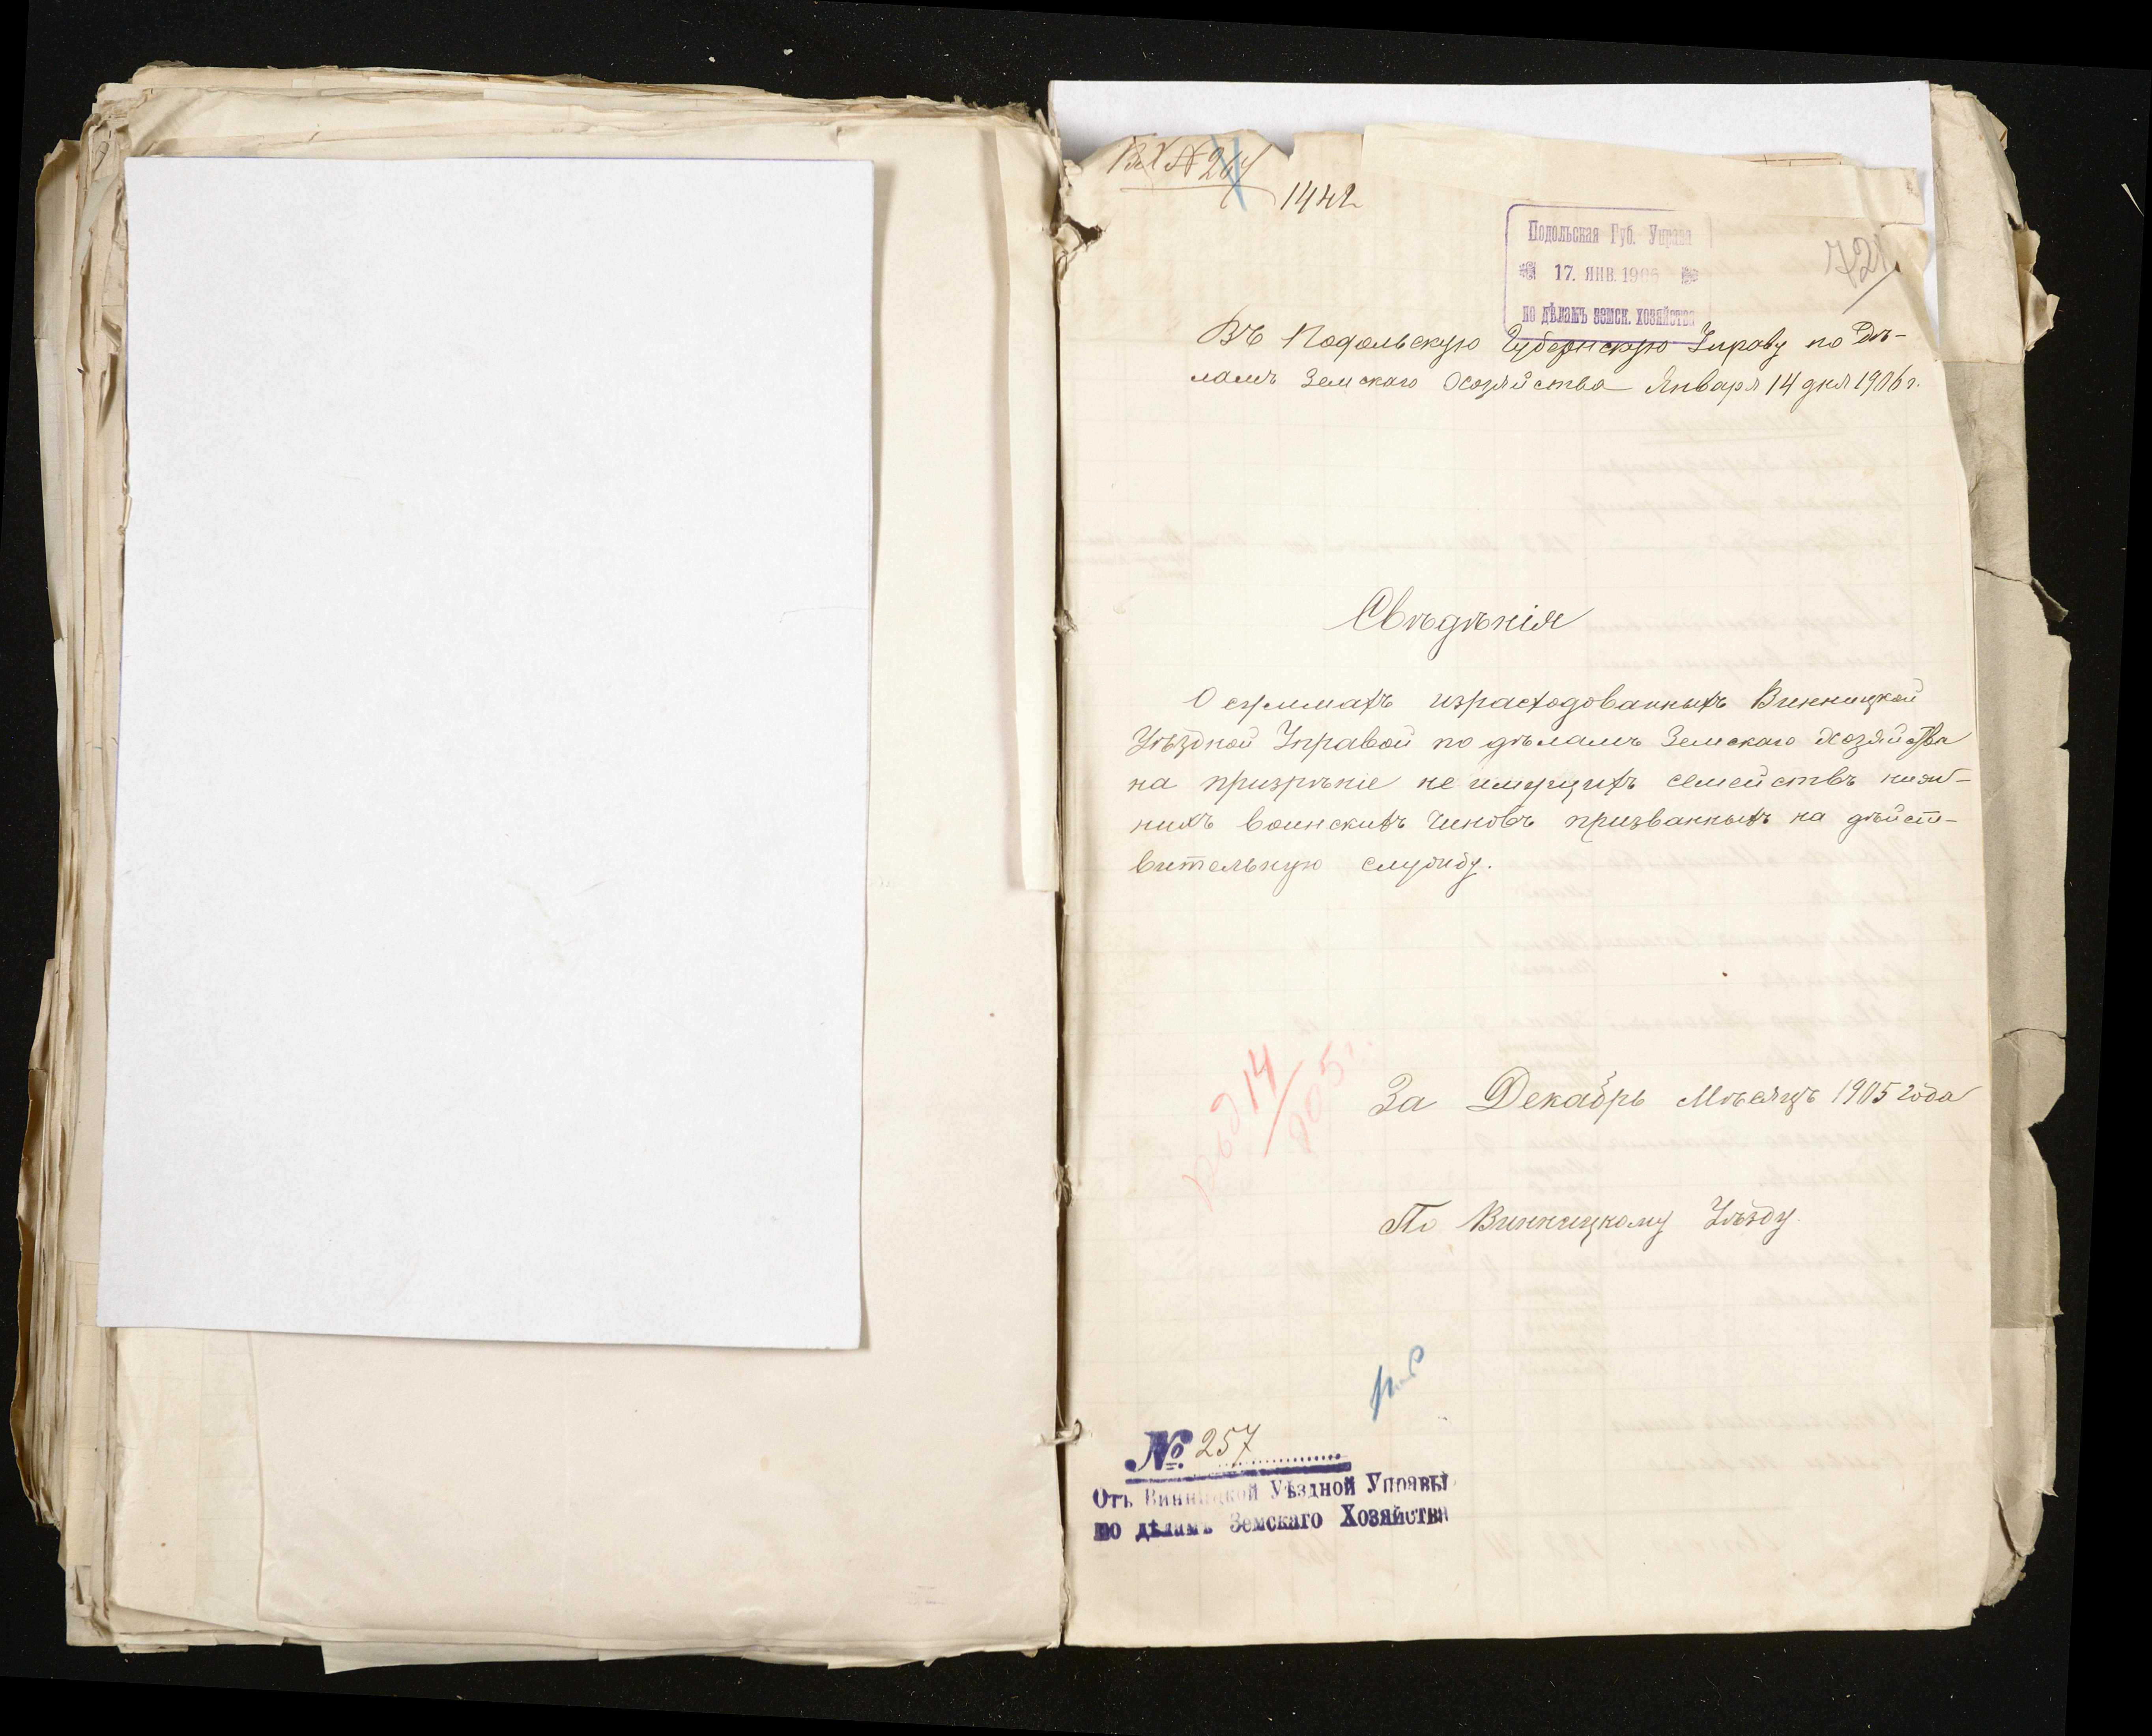 Вх № 264
1442
Подольская Губ. Управа
17. ЯНВ. 1906
по дѣламъ земск. хозяйства
Въ Подольскую Губернскую Управу по Дѣ-
ламъ Земскаго Хозяйства Января 14 дня 1906 г.
Свѣдѣнія
О суммахъ израсходованныхъ Винницкой
Уѣздной Управой по дѣламъ Земскаго Хозяйства
на призрѣніе не имущихъ семействъ ниж-
нихъ воинскихъ чиновъ призванныхъ на дѣйст-
вительную службу.
14
905 г.
За Декабрь Мѣсяцъ 1905 года
По Винницкому Уѣзду.
№ 257
Отъ Винницкой Уѣздной Управы
по дѣламъ Земскаго Хозяйства